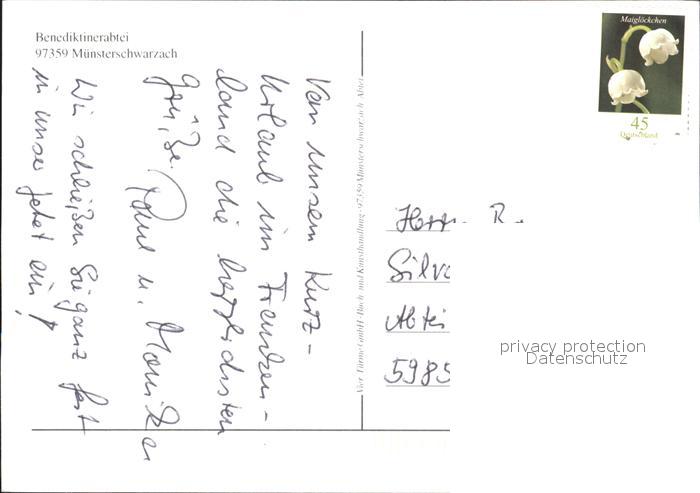 Benediktinerabtei
97359 Münsterschwarzach
Von unsem Kurz-
Urlaub im Franken-
land die herzlichsten
Grüße
u. Monika
Wir schließen Sie ganz fest
in unser Gebet ein!
Vier Türme GmbH - Buch- und Kunsthandlung - 97359 Münsterschwarzach Abtei
Maiglöckchen
45
Deutschland
Herrn R.
Silve
Abtei
5985
privacy protection
Datenschutz